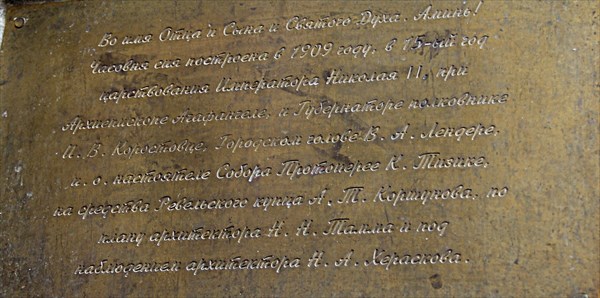 Во имя Отца и Сына и Святого Духа. Аминь!
Часовня сия построена в 1909 году, в 15-ый год
царствования Императора Николая II, при
Архиепископе Агафангеле, и Губернаторе полковнике
И. В. Коростовце, Городском голове В. А. Лендере,
и. о. настоятеле Собора Протоиерее К. Тизике,
на средства Ревельского купца А. Т. Коршунова, по
плану архитектора Н. Н. Тамма и под
наблюдением архитектора Н. А. Хераскова.